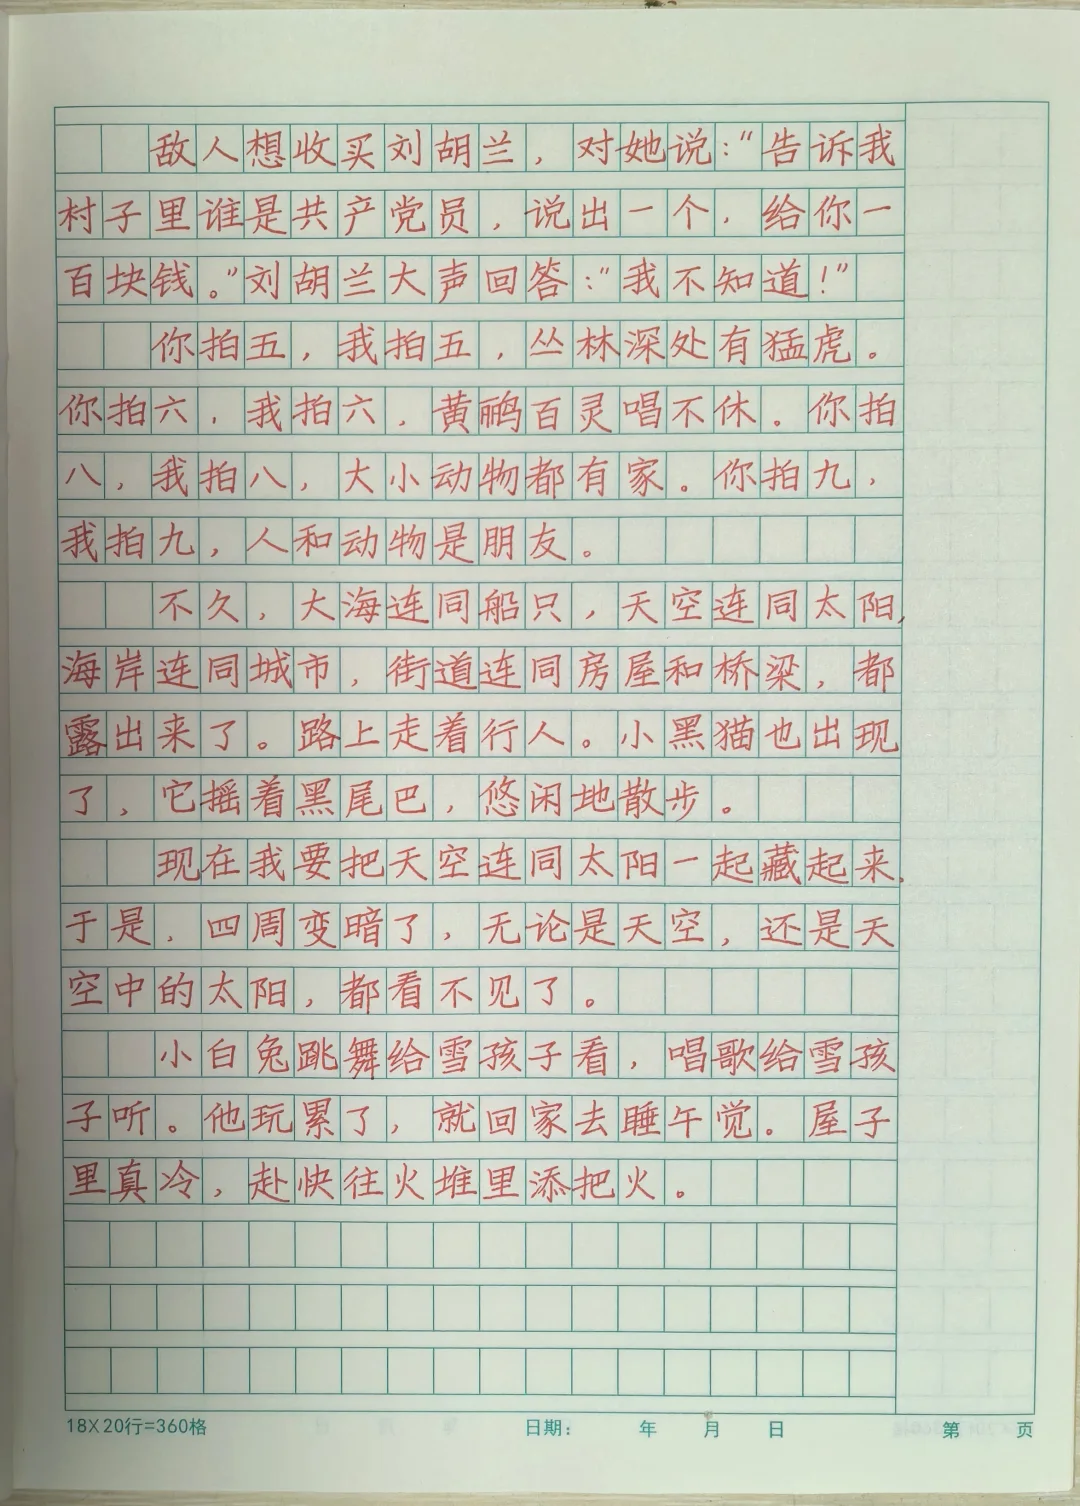 敌人想收买刘胡兰，对她说：“告诉我
村子里谁是共产党员，说出一个，给你一
百块钱。”刘胡兰大声回答：“我不知道！”
你拍五，我拍五，丛林深处有猛虎。
你拍六，我拍六，黄鹂百灵唱不休。你拍
八，我拍八，大小动物都有家。你拍九，
我拍九，人和动物是朋友。
不久，大海连同船只，天空连同太阳，
海岸连同城市，街道连同房屋和桥梁，都
露出来了。路上走着行人。小黑猫也出现
了，它摇着黑尾巴，悠闲地散步。
现在我要把天空连同太阳一起藏起来，
于是，四周变暗了，无论是天空，还是天
空中的太阳，都看不见了。
小白兔跳舞给雪孩子看，唱歌给雪孩
子听。他玩累了，就回家去睡午觉。屋子
里真冷，赴快往火堆里添把火。
18×20行=360格 日期： 年 月 日 第 页